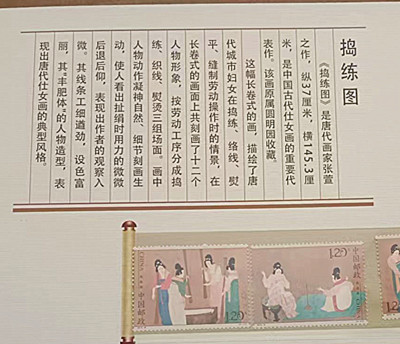 捣练图
《捣练图》是唐代画家张萱
之作，纵37厘米，横145.3厘
米，是中国古代仕女画的重要代
表作。该画原属圆明园收藏。
这幅长卷式的画，描绘了唐
代城市妇女在捣练、络线、熨
平、缝制劳动操作时的情景，在
长卷式的画面上共刻画了十二个
人物形象，按劳动工序分成捣
练、织线、熨烫三组场面。画中
人物动作凝神自然、细节刻画生
动，使人看出扯绢时用力的微微
后退后仰，表现出作者的观察入
微。其线条工细遒劲，设色富
丽，其“丰肥体”的人物造型，表
现出唐代仕女画的典型风格。
中国邮政
CHINA
1.20
1.20
中国邮政